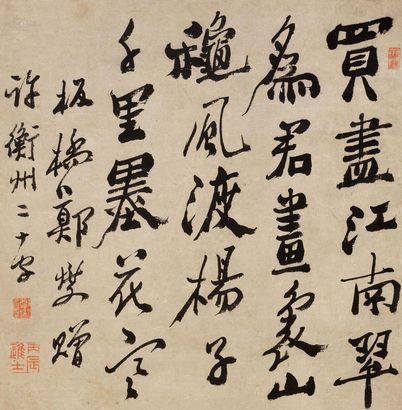 買盡江南翠
為君畫山
龝風渡楊子
千里墨花寒
板橋鄭燮贈
許衡州二十字
丙辰進士